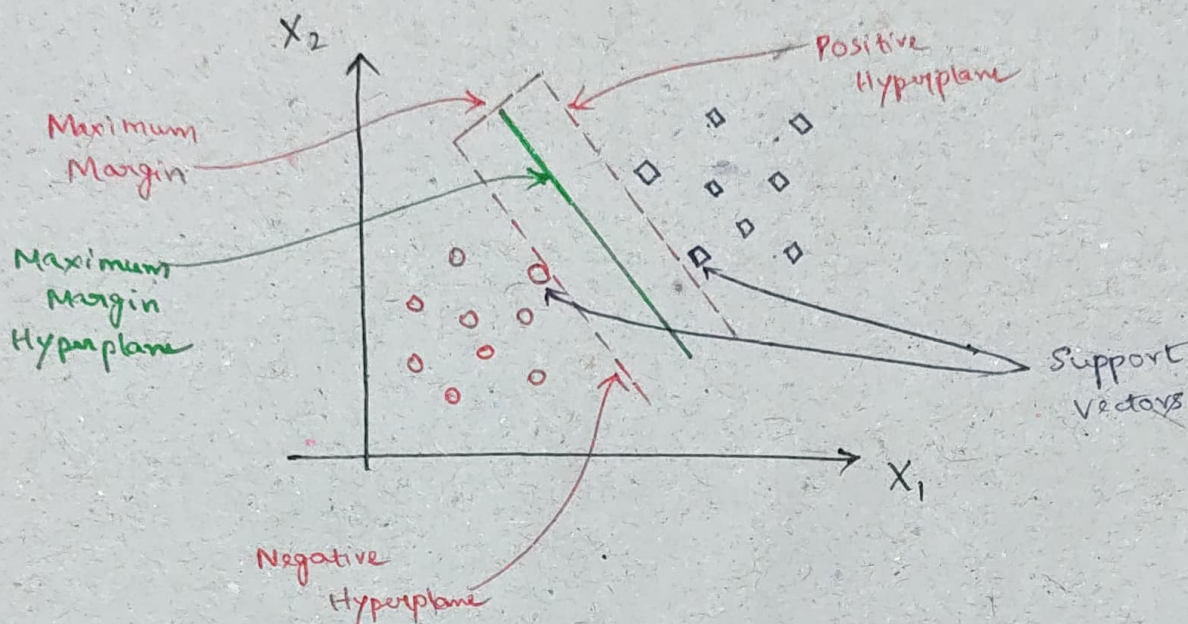 X₂
Positive
Hyperplane
Maximum
Margin
Maximum
Margin
Hyperplane
Support
Vectors
X₁
Negative
Hyperplane